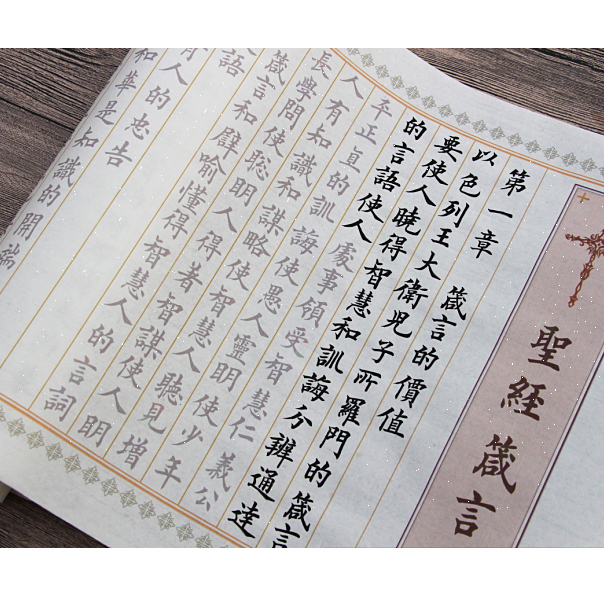 聖經箴言
第一章 箴言的價值
以色列王大衛兒子所羅門的箴言
要使人曉得智慧和訓誨分辨通達
的言語使人處事領受智慧仁義公
平正直的訓誨使愚人靈明使少年
人有知識和謀略使智慧人聽見增
長學問使聰明人得著智謀使人明
箴言和譬喻懂得智慧人的言詞
語
人的忠告
和華是知識的開端